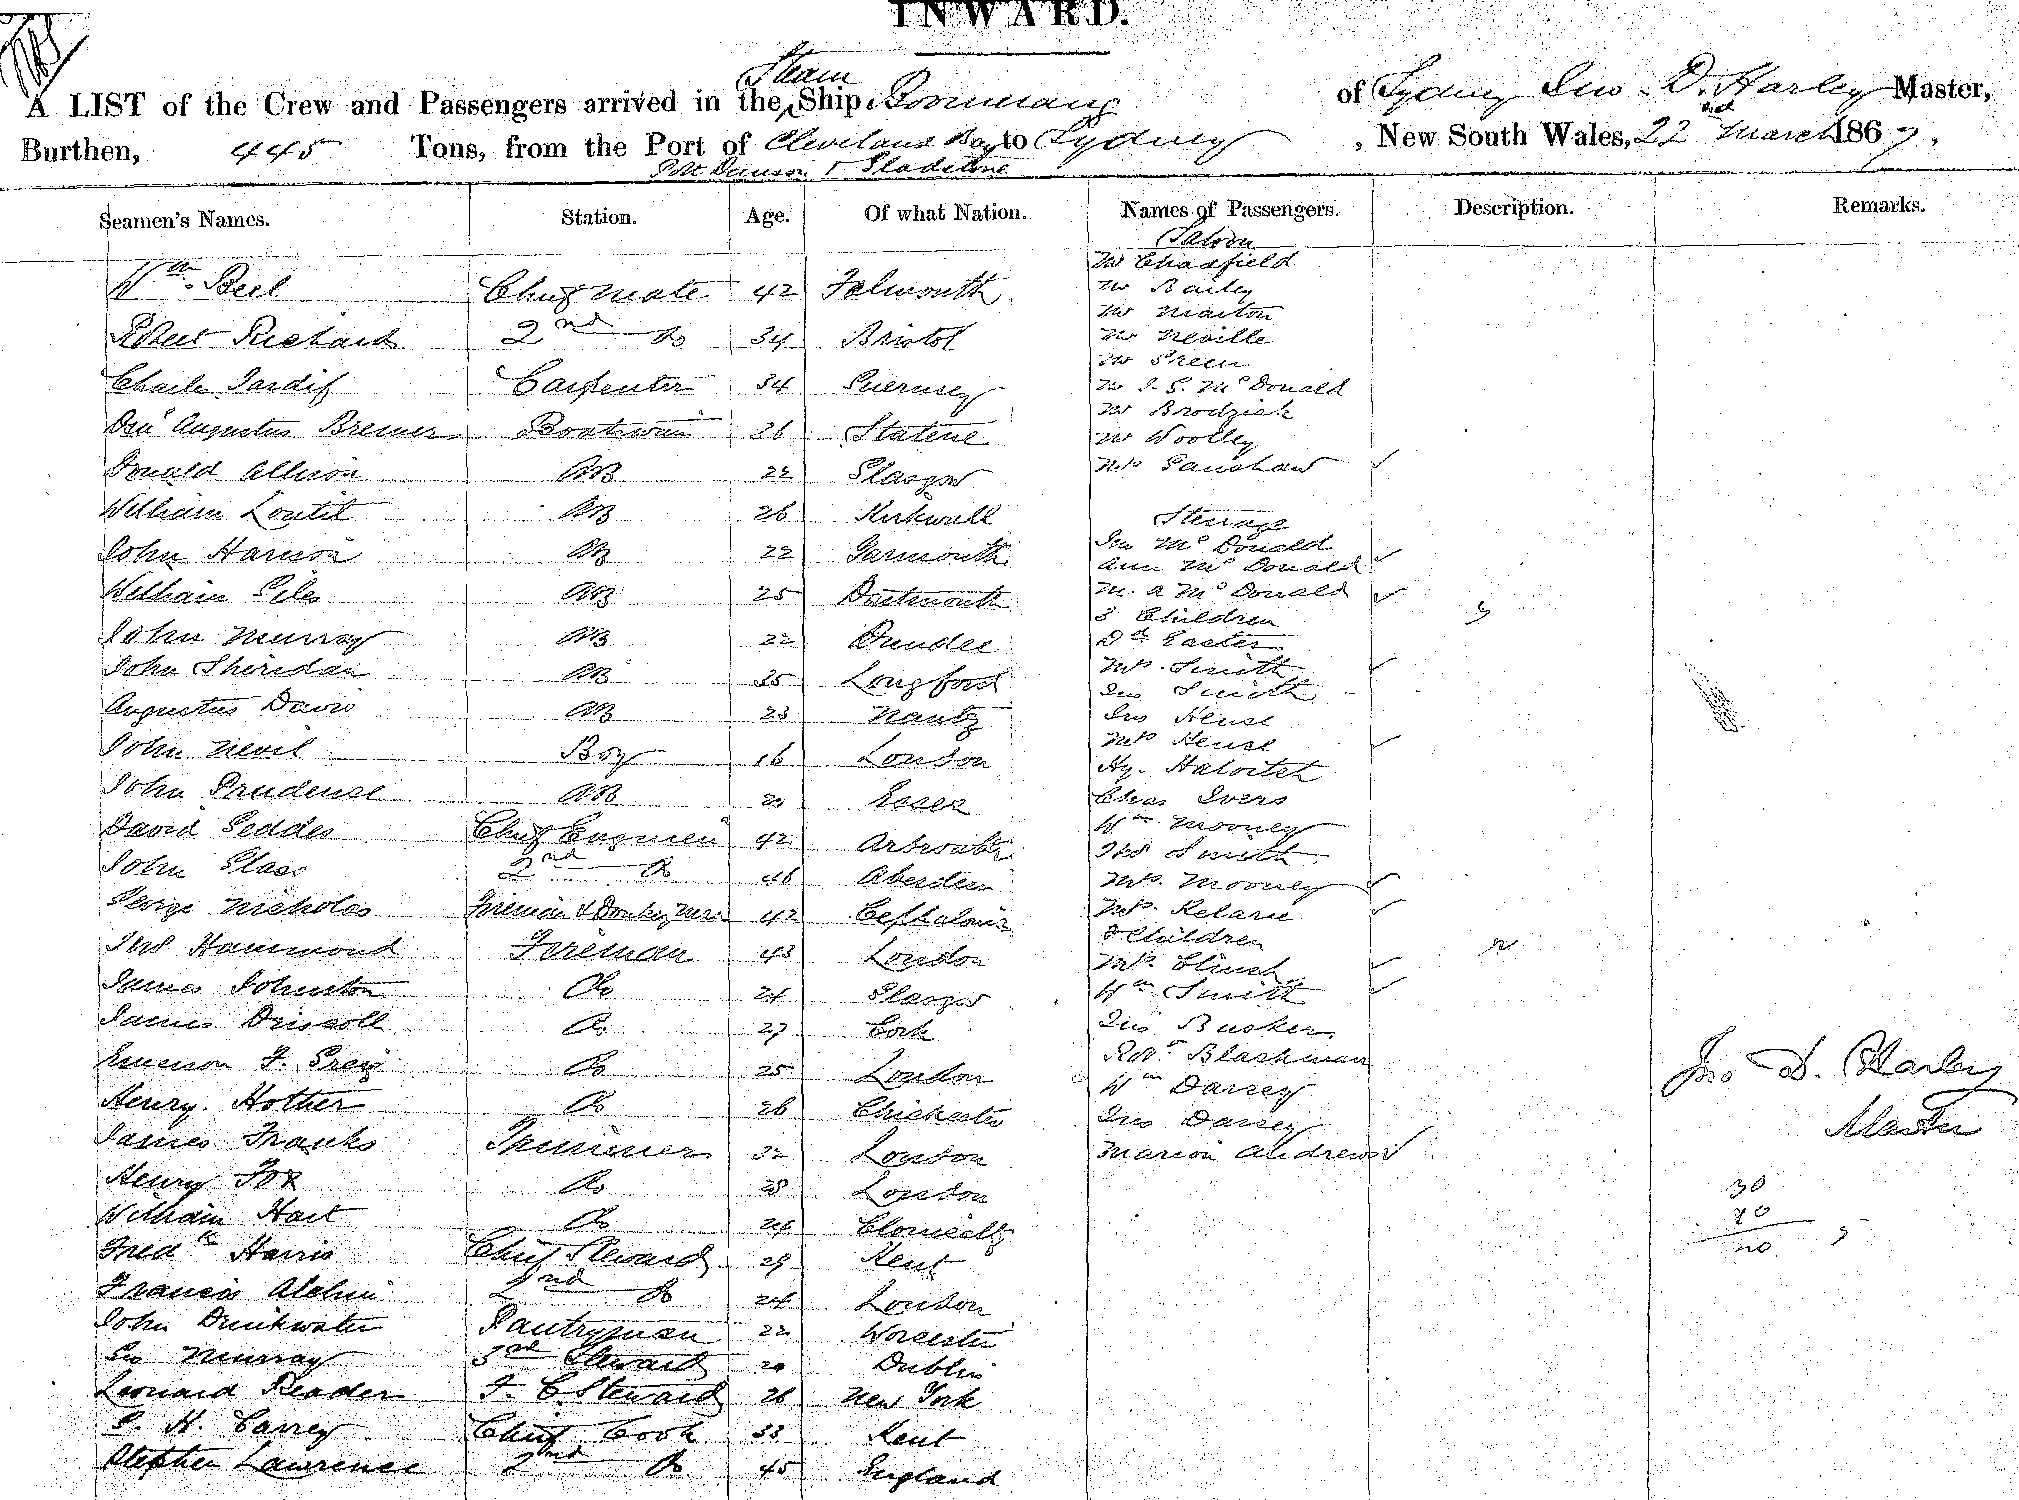 INWARD.
Steam
A LIST of the Crew and Passengers arrived in the Ship Boomerang of Sydney Jno. D. Harley Master,
Burthen, 445 Tons, from the Port of Cleveland Bay to Sydney, New South Wales, 22nd March 1867.
Port Denison & Gladstone
Seamen's Names. Station. Age. Of what Nation. Names of Passengers. Description. Remarks.
Wm. Beel Chief Mate 42 Falmouth
Robert Richard 2nd Do 34 Bristol
Charles Tardif Carpenter 34 Guernsey
Augustus Bremer Boatswain 26
Donald Allison AB 22 Glasgow
William Loutit AB 26 Kirkwall
John Harrison AB 22 Yarmouth
William Giles AB 25 Dartmouth
John Murray AB 22 Dundee
John Sheridan AB 35 Longford
Augustus Davis AB 23 Nantz
John Nevil Boy 16 London
John Prudense AB Essex
David Geddes Chief Engineer 42 Arbroath
John Glass 2nd Do 46 Aberdeen
George Nicholas Fireman & Donkeyman 42 Cephalonia
Thos Hammond Fireman 43 London
James Johnston Do 24 Glasgow
James Driscoll Do 27 Cork
Emerson F. Greig Do 25 London
Henry Hother Do 26 Chichester
James Franks Trimmer 32 London
Henry Fox Do 28 London
William Hart Do 24 Clonmelly
Fredk Harris Chief Steward 29 Kent
Francis Alchin 2nd Do 24 London
John Drinkwater Pantryman 22 Worcester
Geo Murray 3rd Steward 20 Dublin
Leonard Reader F. C. Steward 26 New York
G. H. Carrey Chief Cook 33 Kent
Stephen Lawrence 2nd Do 45 England
Saloon
Mr Chadfield
Mr Bailey
Mr Marton
Mr Neville
Mr Green
Mr J. G. McDonald
Mr Brodzick
Mr Woolley
Mrs Ganshaw
Steerage
Jno McDonald
Ann McDonald
M. A McDonald
3 Children 3
Dd Easter
Mrs. Smith
Jno Smith
Jno Hense
Mrs Hense
Hy.
Chas Ivers
Wm Mooney
Thos Smith
Mrs. Mooney
Mrs. Kelarie
2 Children 2
Mrs. Clinch
Wm Smith
Jno Busker
Robt Blackman
Wm Darrey
Jno Darrey
Marion Andrews
Jno D. Harley
Master
30